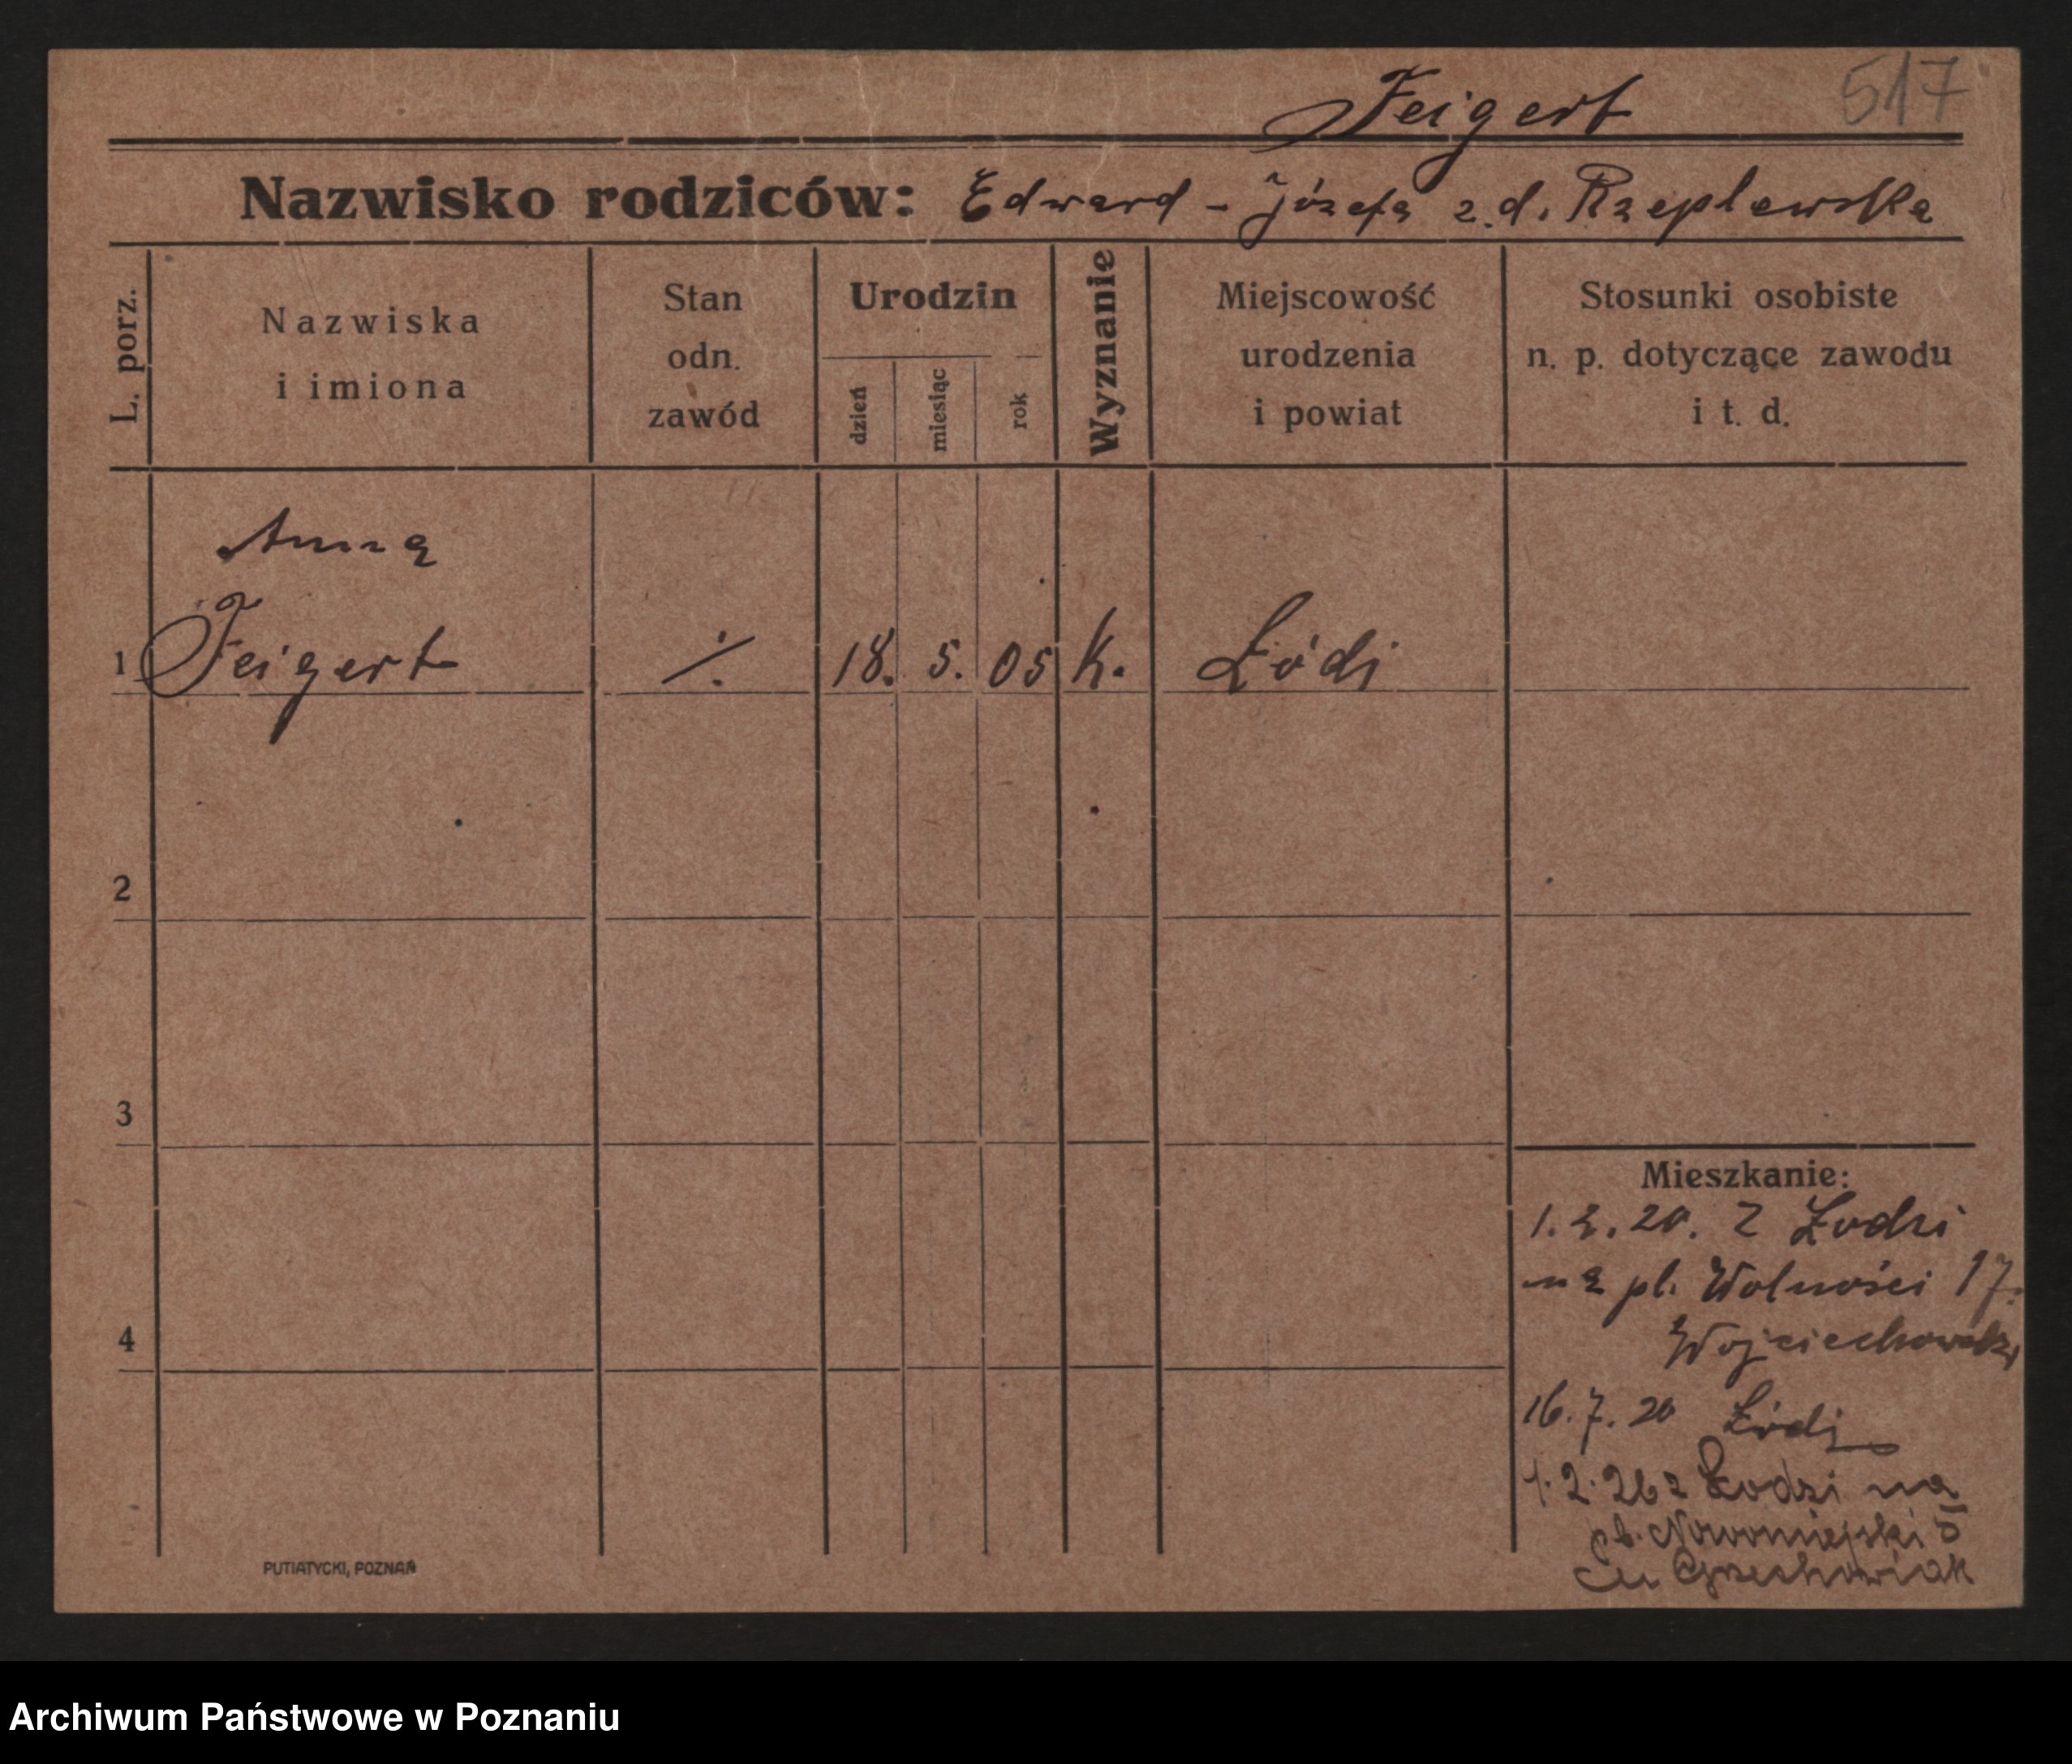 Feigert 517
Nazwisko rodziców: Edward - Józefa z.d. Rzeplewska
L. porz.
Nazwiska
i imiona
Stan
odn.
zawód
Urodzin
dzień
miesiąc
rok
Wyznanie
Miejscowość
urodzenia
i powiat
Stosunki osobiste
n. p. dotyczące zawodu
i t. d.
Anna
1 Feigert ./. 18. 5. 05 k. Łódź
2
3
4
Mieszkanie:
1.2.20. z Łodzi
na pl. Wolności 17.
Wojciechowski
16.7.20 Łódź
1.2.26 z Łodzi na
pl. Nowomiejski 5
Grzechowiak
PUTIATYCKI, POZNAŃ
Archiwum Państwowe w Poznaniu